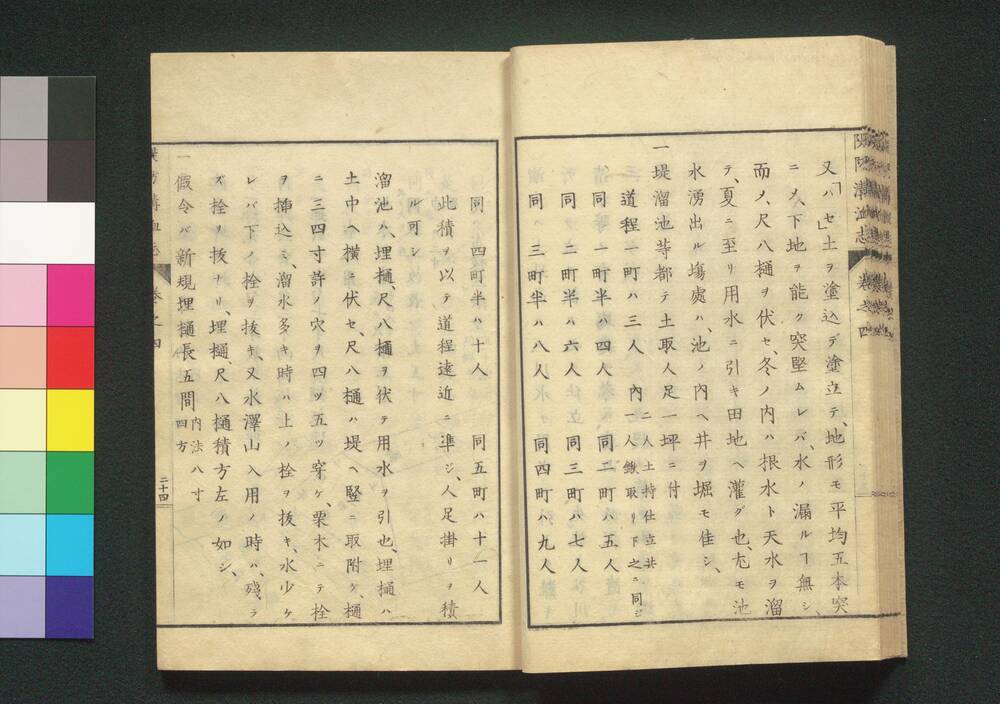 又「ハ」セ土ヲ塗込デ塗立テ、地形モ平均五本突
ニメ、下地ヲ能ク突堅ムレバ、水ノ漏ルヿ無シ、
而ノ、尺八樋ヲ伏セ、冬ノ内ハ根水ト天水ヲ溜
テ、夏ニ至リ用水ニ引キ田地ヘ灌グ也、尤モ池
水湧出ル塲處ハ、池ノ內ヘ井ヲ堀モ佳シ、
一堤溜池等都テ土取人足一坪ニ付
道程一町ハ三人 內 二人土持仕立共 一人鍬取リ下之ニ同ジ
同一町半ハ四人 同二町ハ五人
同二町半ハ六人 同三町ハ七人
同三町半ハ八人 同四町ハ九人
同四町半ハ十人 同五町ハ十一人
此積ヲ以テ道程遠近ニ準ジ、人足掛リヲ積
ル可シ
溜池ハ、埋樋、尺八樋ヲ伏テ用水ヲ引也、埋樋ハ
土中ヘ橫ニ伏セ、尺八樋ハ堤ヘ竪ニ取附ケ、樋
ニ三四寸許ノ穴ヲ四ツ五ツ穿ケ、栗木ニテ栓
ヲ揷込ミ、溜水多キ時ハ上ノ栓ヲ抜キ、水少ケ
レバ下ノ栓ヲ抜キ、又水澤山入用ノ時ハ、殘ラ
ズ栓ヲ抜ナリ、埋樋、尺八樋積方左ノ如シ、
一假令バ新規埋樋長五間 內法八寸四方
二十四